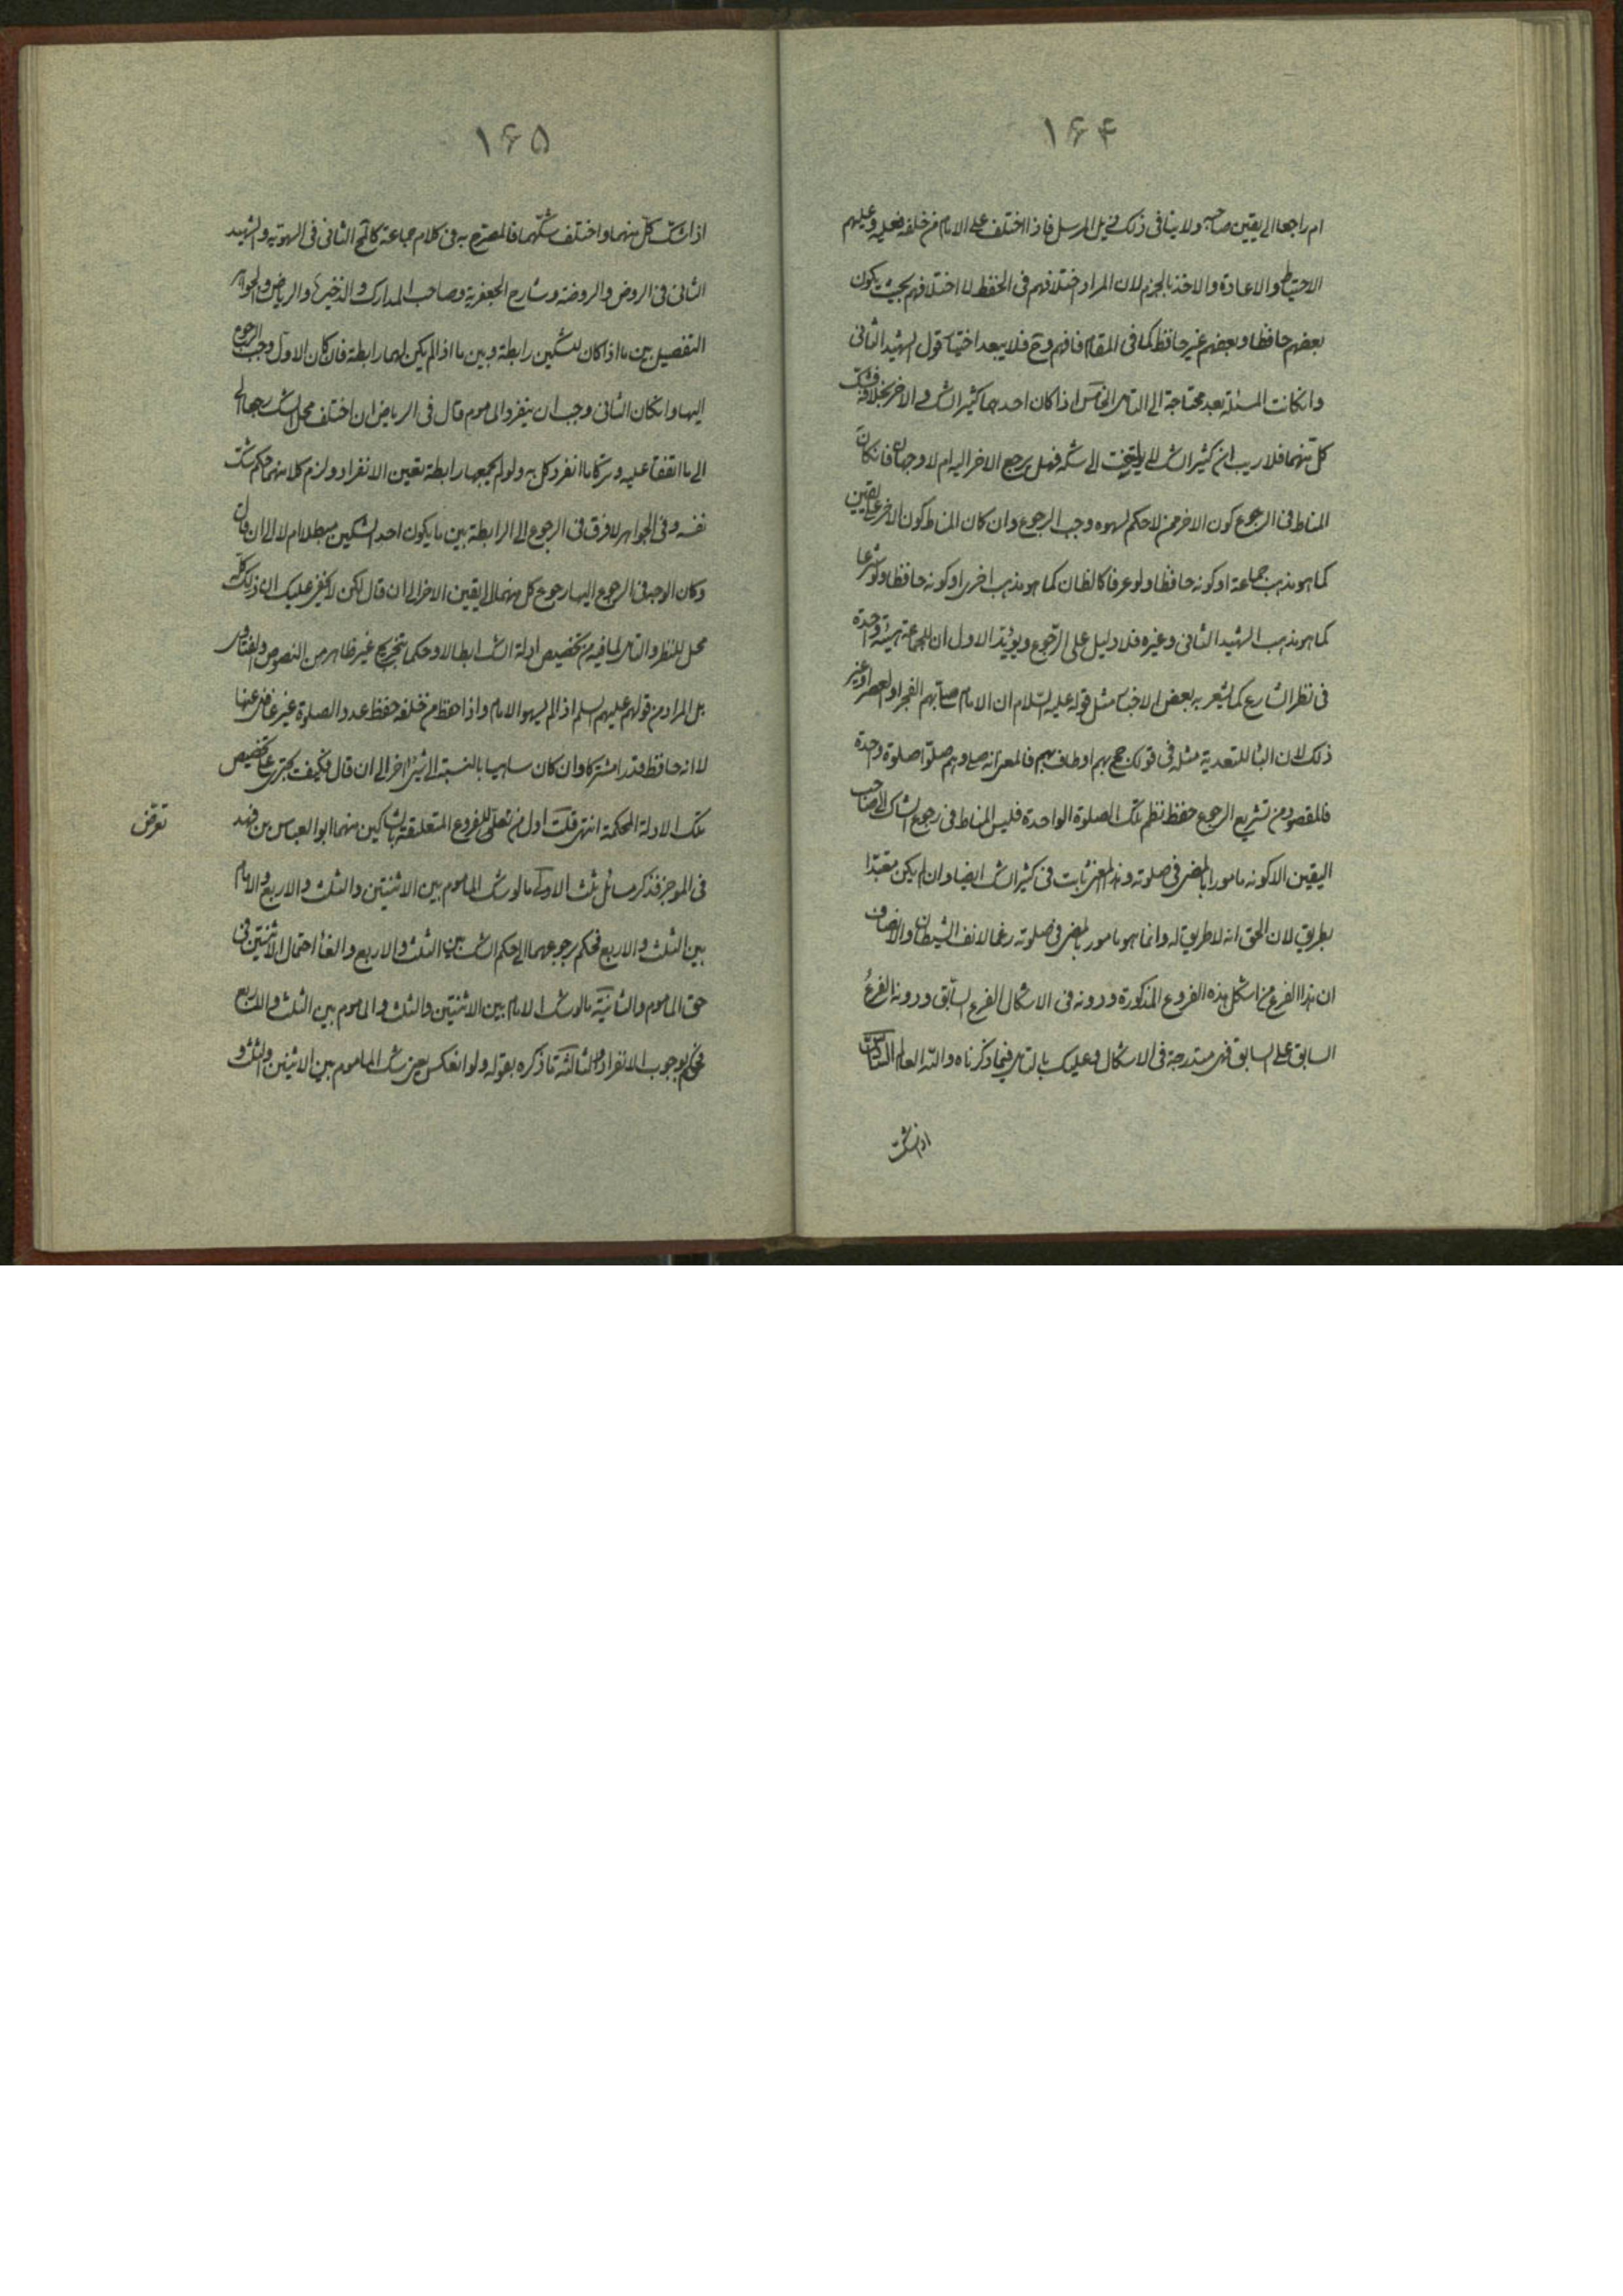 ۱۶۴
ام راجعا الى يقين صاحبه ولا ينافى ذلك ذيل المرسل فاذا اختلف على الامام من خلفه فعليه وعليهم
الاحتياط والاعادة والاخذ بالجزم لان المراد اختلافهم فى الحفظ لا اختلافهم بحيث يكون
بعضهم حافظا وبعضهم غير حافظ كما فى المقام فافهم وح فلا يبعد اختيار قول الشهيد الثانى
وانكانت المسئلة بعد محتاجة الى التامل الخامس اذا كان احدهما كثير الشك والاخر بخلافه فشك
كل منهما فلا ريب ان كثير الشك لا يلتفت الى شكه فهل يرجع الاخر اليه ام لا وجهان فانكان
المناط فى الرجوع كون الاخر ممن لا حكم لسهوه وجب الرجوع وان كان المناط كون الاخر على يقين
كما هو مذهب جماعة او كونه حافظا ولو عرفا كالظان كما هو مذهب اخرى او كونه حافظا ولو شرعا
كما هو مذهب الشهيد الثانى وغيره فلا دليل على الرجوع ويؤيد الاول ان للجماعة هيئة واحدة
فى نظر الشارع كما يشعر به بعض الاخبار مثل قوله عليه السلام ان الامام صلى بهم الفجر او العصر او غير
ذلك لان البا للتعدية مثله فى قولك حج بهم او طاف بهم فالمعنى انه صلى وهم صلوا صلوة واحدة
فالمقصود من تشريع الرجوع حفظ نظم تلك الصلوة الواحدة فليس المناط فى رجوع الشاك الى صاحب
اليقين الا كونه مامورا بالمضى فى صلوته وهذا المعنى ثابت فى كثير الشك ايضا وان لم يكن متعبدا
بطريق لان الحق انه لا طريق له وانما هو مامور بالمضى فى صلوته رغما لانف الشيطان والانصاف
ان هذا الفرع من اشكل هذه الفروع المذكورة ودونه فى الاشكال الفرع السابق ودونه الفرع
السابق على السابق فهى متدرجة فى الاشكال وعليك بالتامل فيما ذكرناه والله العالم السادس
اذا شك
۱۶۵
اذا شك كل منهما واختلف شكهما فالمصرح به فى كلام جماعة كالمحقق الثانى فى السهوية والشهيد
الثانى فى الروض والروضة وشارح الجعفرية وصاحب المدارك والذخيرة والرياض والجواهر
التفصيل بين ما اذا كان للشكين رابطة وبين ما اذا لم يكن لهما رابطة فان كان الاول وجب الرجوع
اليها وانكان الثانى وجب ان ينفرد الماموم قال فى الرياض ان اختلف محل الشك رجعا
الى ما اتفقا عليه وتركا ما انفرد كل به ولو لم يجمعهما رابطة تعين الانفراد ولزم كلا منهما حكم شك
نفسه وفى الجواهر لا فرق فى الرجوع الى الرابطة بين ما يكون احد الشكين مبطلا ام لا الى ان قال
وكان الوجه فى الرجوع اليها رجوع كل منهما لا يقين الاخر الى ان قال لكن لا يخفى عليك ان ذلك كله
محل للنظر والتامل لما فيه من تخصيص ادلة الشك ابطالا وحكما بتخريج غير ظاهر من النصوص والفتاوى
بل المراد من قولهم عليهم السلم اذا لم يسهو الامام واذا حفظ من خلفه حفظ عدد الصلوة غير غافل عنها
لا انه حافظ قدرا مشتركا وان كان ساهيا بالنسبة الى شئ اخر الى ان قال فكيف يجترى على تخصيص
تلك الادلة المحكمة انتهى قلت اول من تعرض للفروع المتعلقة بالشاكين منهما ابو العباس بن فهد
تعرض
فى الموجز فذكر مسائل ثلث الاولى ما لو شك الماموم بين الاثنتين والثلث والاربع والامام
بين الثلث والاربع فحكم برجوعهما الى حكم الشك بين الثلث والاربع والغا احتمال الاثنتين فى
حق الماموم والثانية ما لو شك الامام بين الاثنتين والثلث والماموم بين الثلث والاربع
فحكم بوجوب الانفراد والثالثة ما ذكره بقوله ولو انعكس يعنى شك الماموم بين الاثنين والثلث و